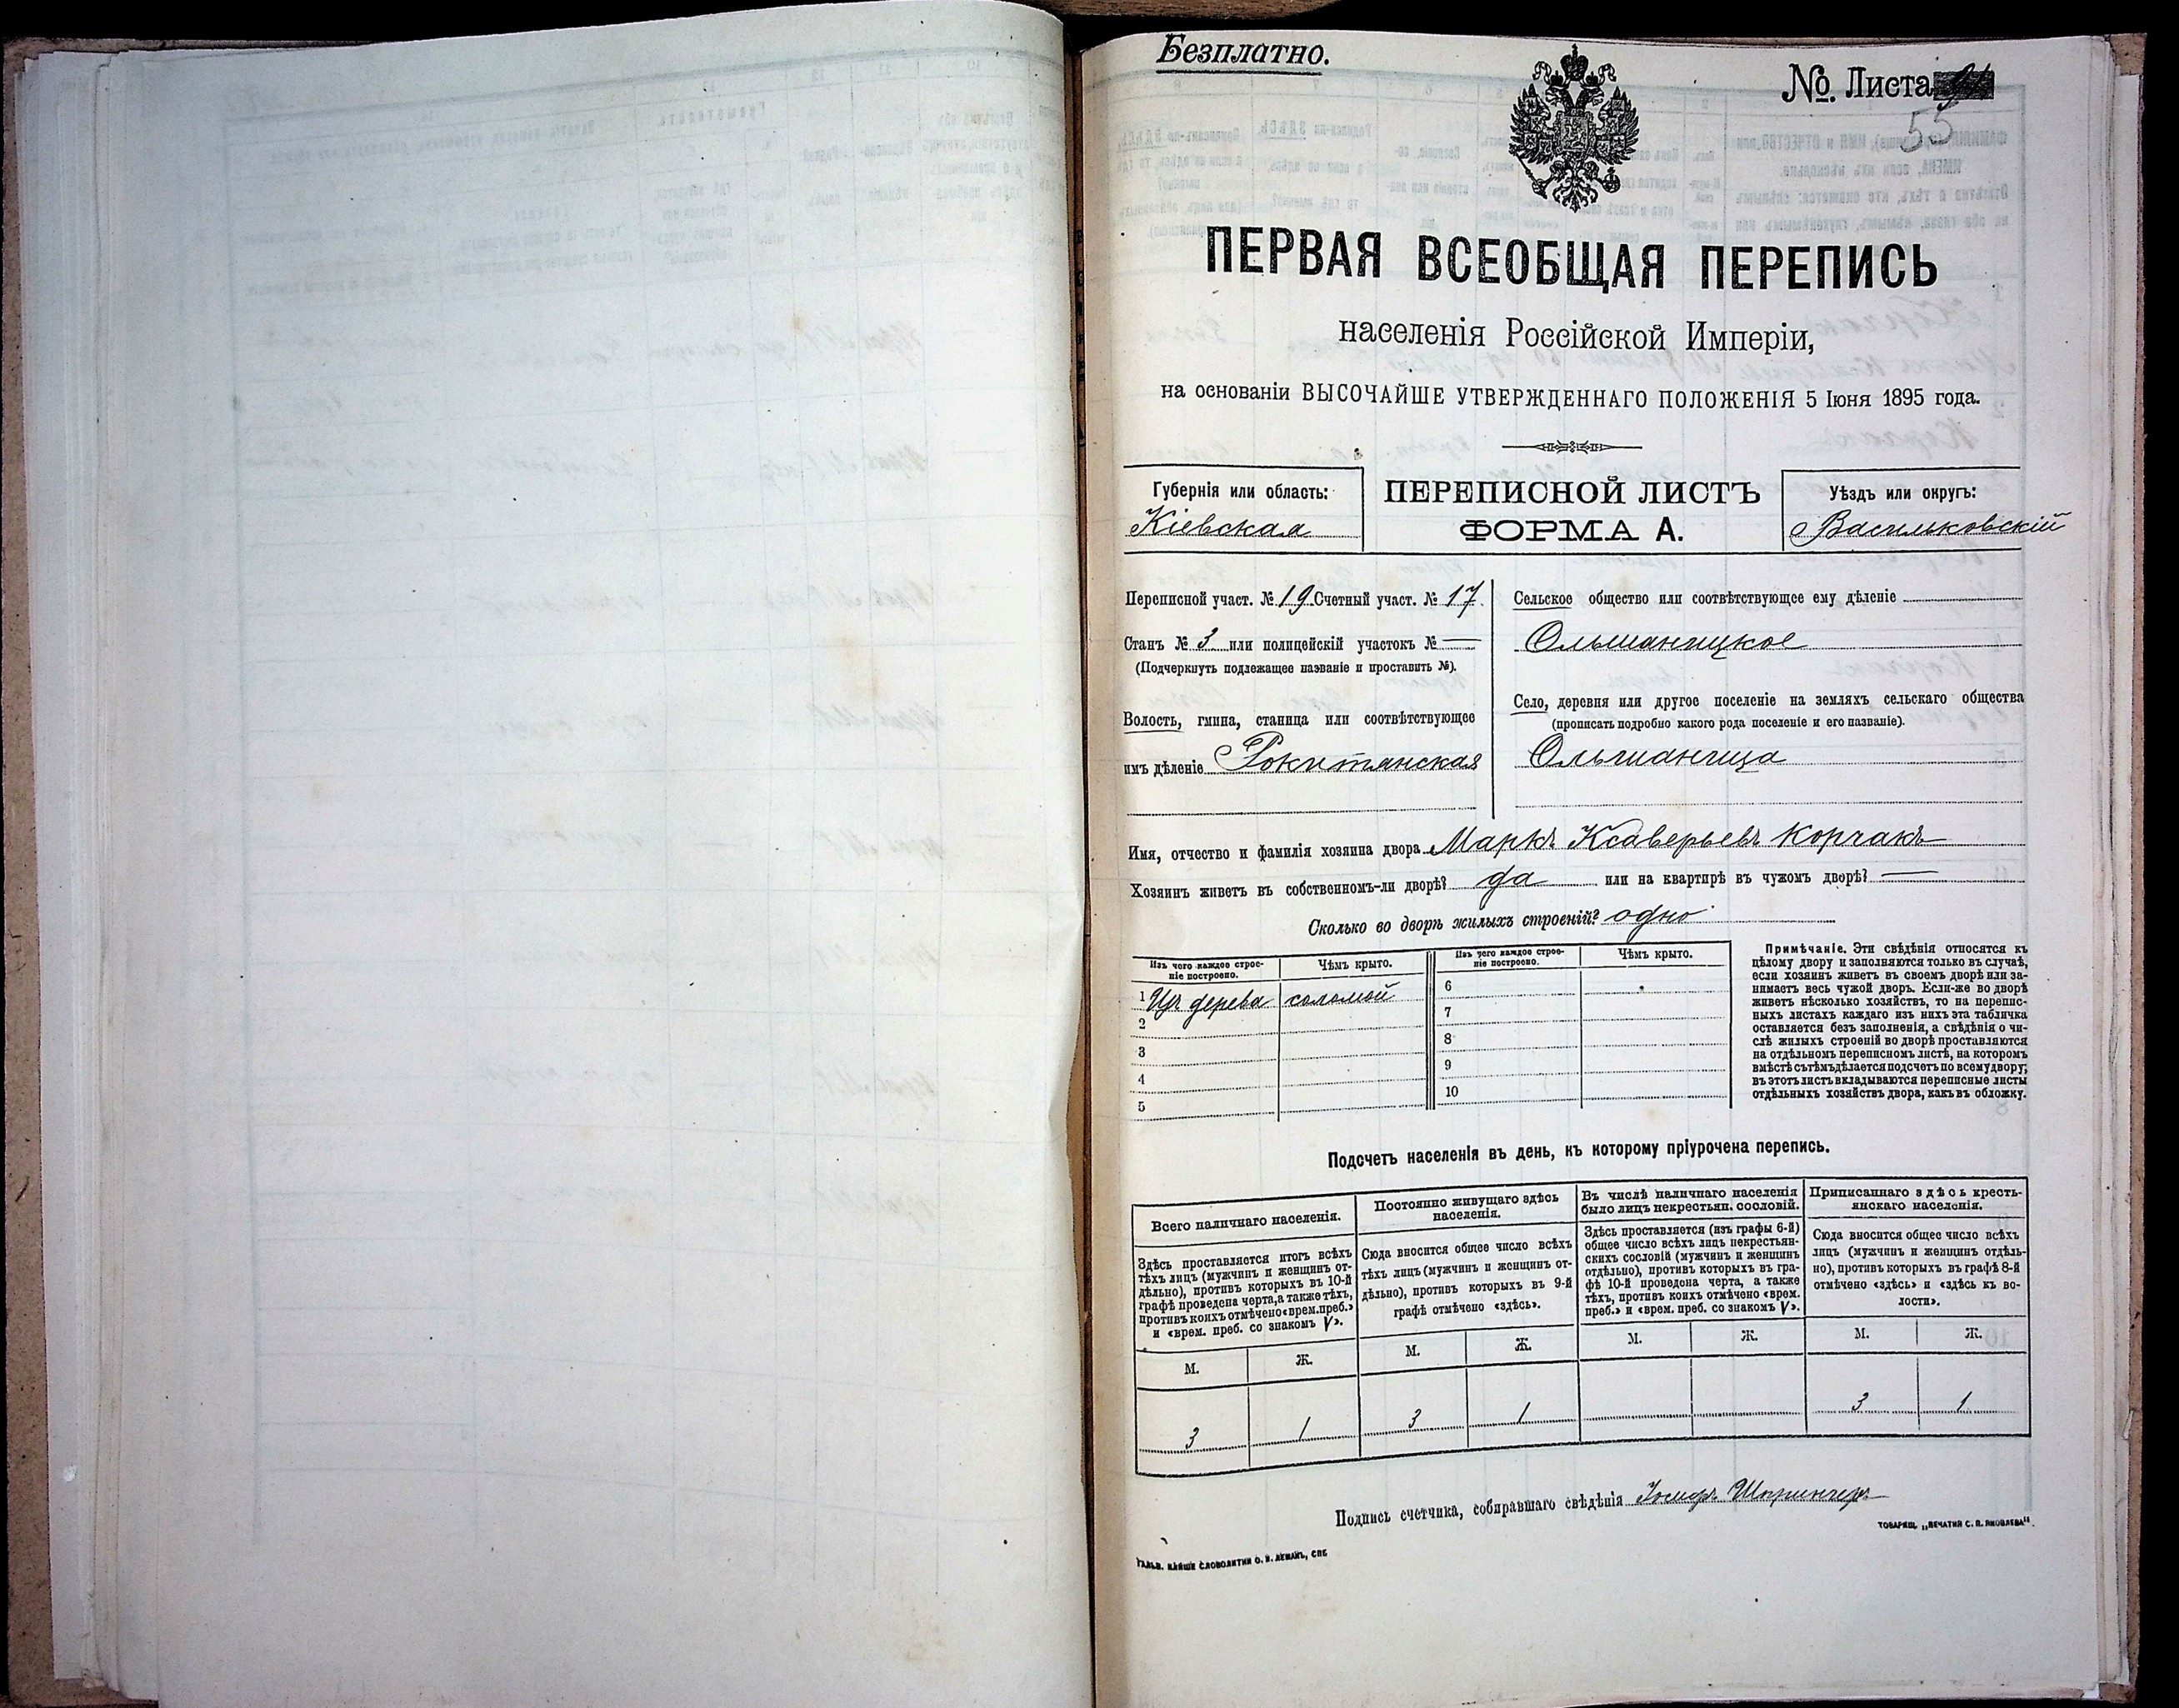 Безплатно.
№ Листа
55
ПЕРВАЯ ВСЕОБЩАЯ ПЕРЕПИСЬ
населенія Россійской Имперіи,
на основаніи ВЫСОЧАЙШЕ УТВЕРЖДЕННАГО ПОЛОЖЕНІЯ 5 Іюня 1895 года.
Губернія или область:
Кіевская
ПЕРЕПИСНОЙ ЛИСТЪ
ФОРМА А.
Уѣздъ или округъ:
Васильковскій
Переписной участ. № 19 Счетный участ. № 17
Станъ № 3 или полицейскій участокъ № —
(Подчеркнуть подлежащее названіе и проставить №).
Волость, гмина, станица или соотвѣтствующее
имъ дѣленіе Рокитянская
Сельское общество или соотвѣтствующее ему дѣленіе
Ольшаницкое
Село, деревня или другое поселеніе на земляхъ сельскаго общества
(прописать подробно какого рода поселеніе и его названіе).
Ольшаница
Имя, отчество и фамилія хозяина двора Маркъ Ксаверьевъ Корчакъ
Хозяинъ живетъ въ собственномъ-ли дворѣ? да или на квартирѣ въ чужомъ дворѣ? —
Сколько во дворѣ жилыхъ строеній? одно
Изъ чего каждое строе-
ніе построено.
Чѣмъ крыто.
Изъ чего каждое строе-
ніе построено.
Чѣмъ крыто.
1 Изъ дерева соломой
2
3
4
5
6
7
8
9
10
Примѣчаніе. Эти свѣдѣнія относятся къ
цѣлому двору и заполняются только въ случаѣ,
если хозяинъ живетъ въ своемъ дворѣ или за-
нимаетъ весь чужой дворъ. Если-же во дворѣ
живетъ нѣсколько хозяйствъ, то на перепис-
ныхъ листахъ каждаго изъ нихъ эта табличка
оставляется безъ заполненія, а свѣдѣнія о чи-
слѣ жилыхъ строеній во дворѣ проставляются
на отдѣльномъ переписномъ листѣ, на которомъ
вмѣстѣ съ тѣмъ дѣлается подсчетъ по всему двору;
въ этотъ листъ вкладываются переписные листы
отдѣльныхъ хозяйствъ двора, какъ въ обложку.
Подсчетъ населенія въ день, къ которому пріурочена перепись.
Всего наличнаго населенія.
Здѣсь проставляется итогъ всѣхъ
тѣхъ лицъ (мужчинъ и женщинъ от-
дѣльно), противъ которыхъ въ 10-й
графѣ проведена черта, а также тѣхъ,
противъ коихъ отмѣчено «врем. преб.»
и «врем. преб. со знакомъ V».
Постоянно живущаго здѣсь
населенія.
Сюда вносится общее число всѣхъ
тѣхъ лицъ (мужчинъ и женщинъ от-
дѣльно), противъ которыхъ въ 9-й
графѣ отмѣчено «здѣсь».
Въ числѣ наличнаго населенія
было лицъ некрестьян. сословій.
Здѣсь проставляется (изъ графы 6-й)
общее число всѣхъ лицъ некрестьян-
скихъ сословій (мужчинъ и женщинъ
отдѣльно), противъ которыхъ въ гра-
фѣ 10-й проведена черта, а также
тѣхъ, противъ коихъ отмѣчено «врем.
преб.» и «врем. преб. со знакомъ V».
Приписаннаго здѣсь кресть-
янскаго населенія.
Сюда вносится общее число всѣхъ
лицъ (мужчинъ и женщинъ отдѣль-
но), противъ которыхъ въ графѣ 8-й
отмѣчено «здѣсь» и «здѣсь къ во-
лости».
М. Ж. М. Ж. М. Ж. М. Ж.
3 1 3 1 3 1
Подпись счетчика, собиравшаго свѣдѣнія Іосифъ
ТОВАРИЩ. „ПЕЧАТНЯ С. П. ЯКОВЛЕВА“.
СЛОВОЛИТНИ О. И. ЛЕМАНЪ, СПБ